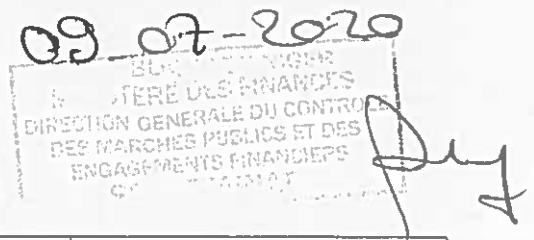 09-07-2020
DES FINANCES
DIRECTION GENERALE DU CONTROLE
DES MARCHES PUBLICS ET DES
ENGAGEMENTS FINANCIERS